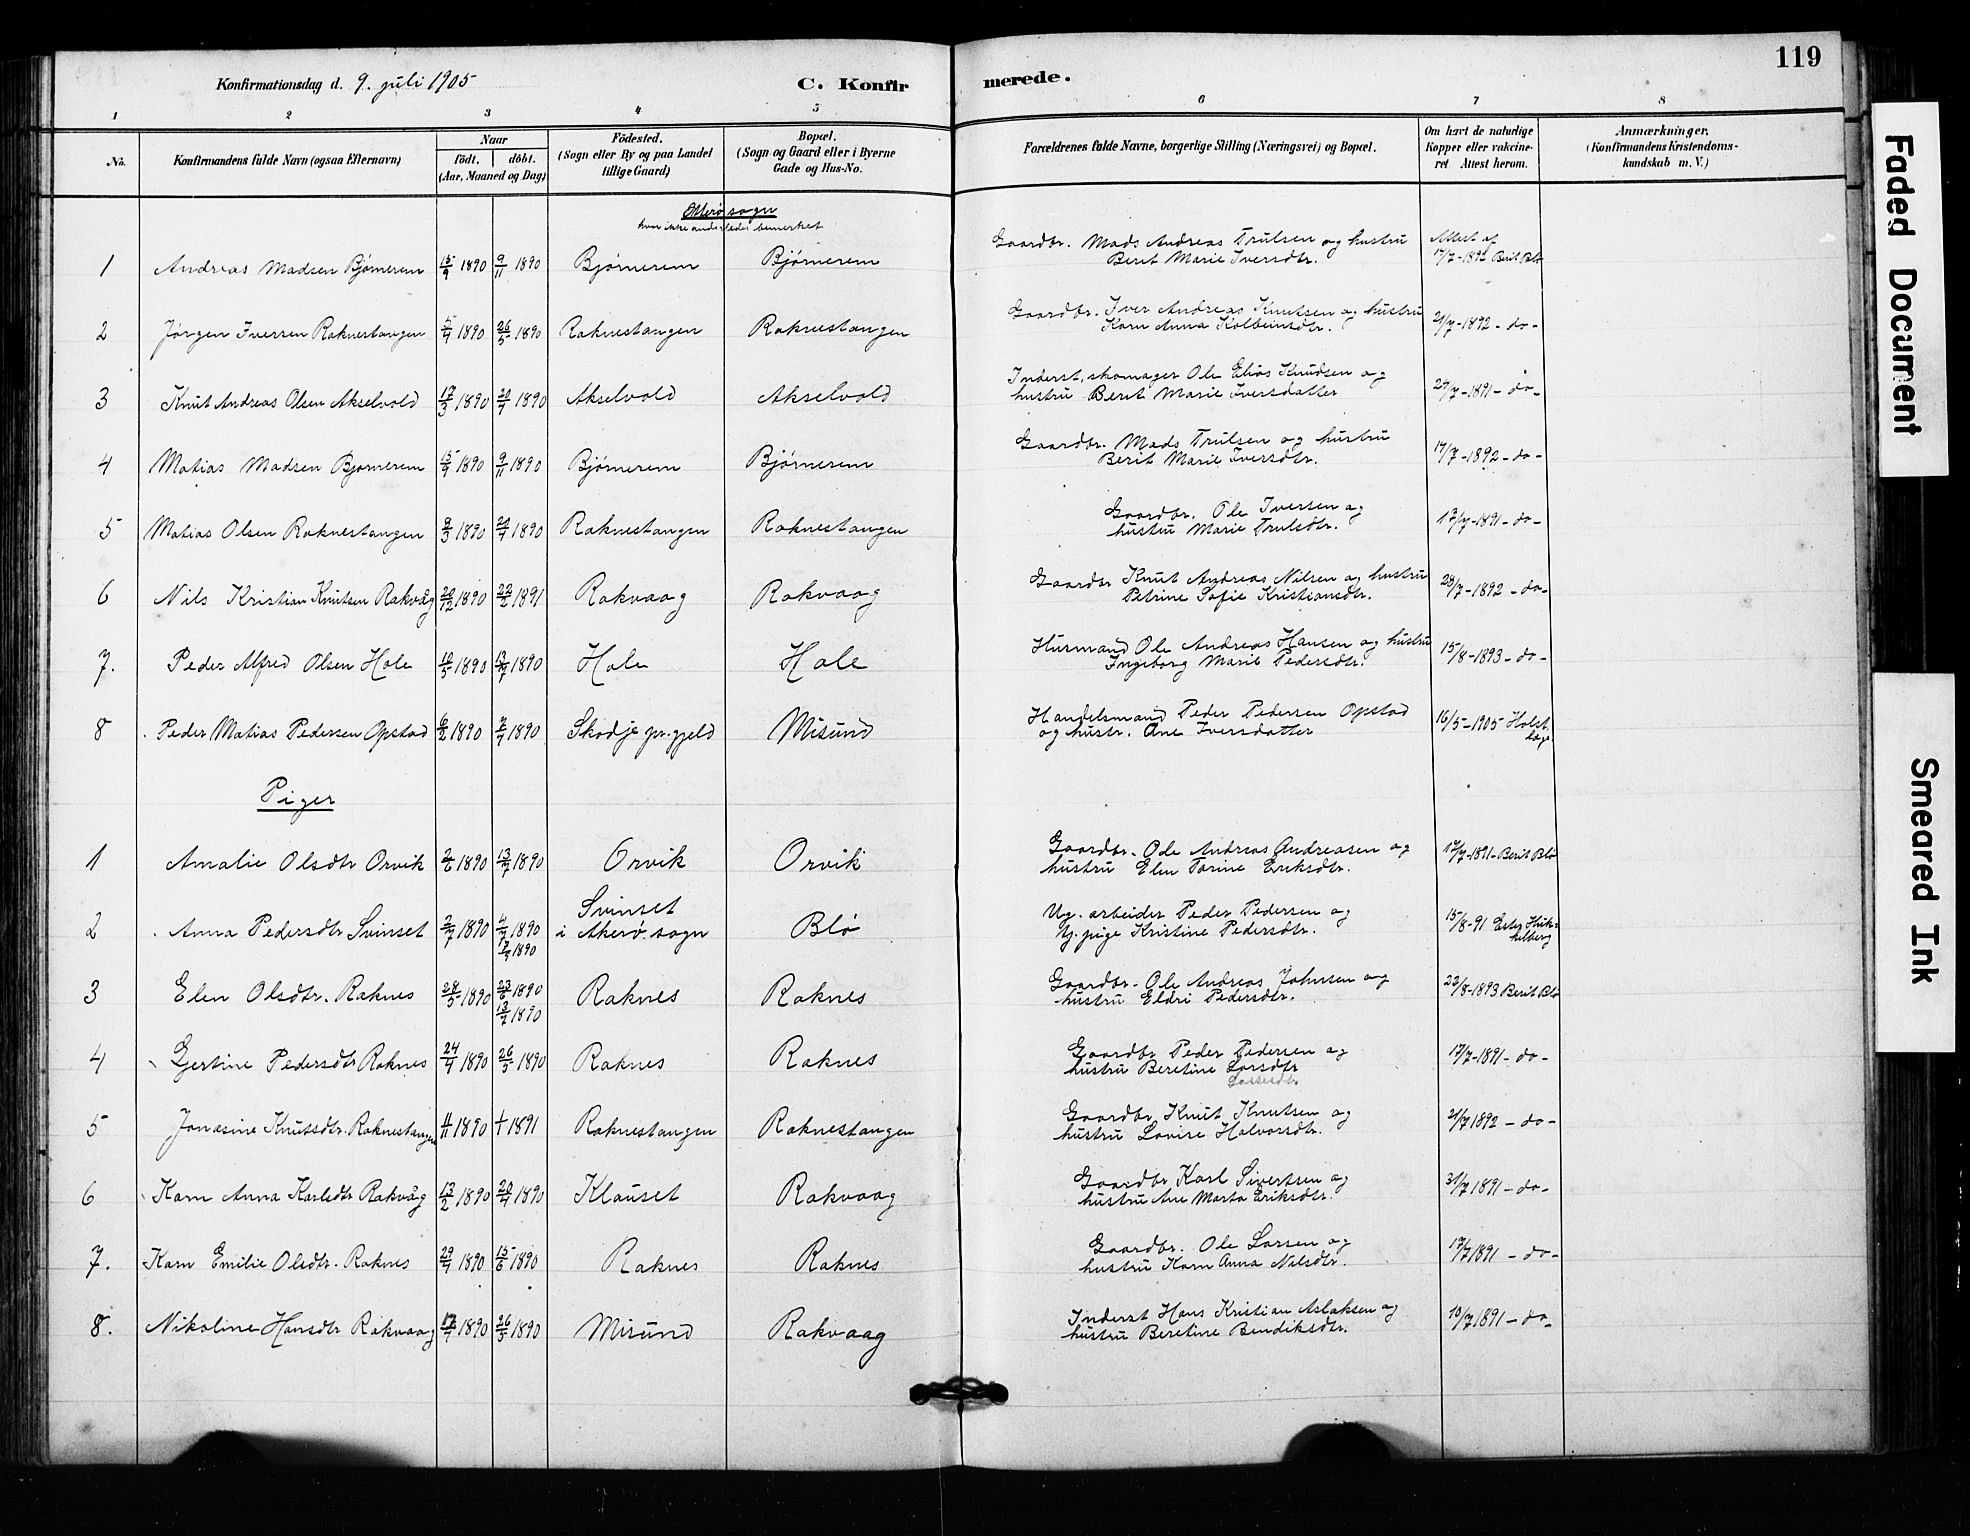 119
Konfirmationsdag d. 9. juli 1905
C. Konfirmerede.
1 2 3 4 5 6 7 8
No.
Konfirmandens fulde Navn (ogsaa Efternavn)
Naar
födt. döbt.
(Aar, Maaned og Dag)
Födested.
(Sogn eller By og paa Landet
tillige Gaard)
Bopæl.
(Sogn og Gaard eller i Byerne
Gade og Hus-No.
Forældrenes fulde Navne, borgerlige Stilling (Næringsvei) og Bopæl.
Om havt de naturlige
Kopper eller vakcine-
ret Attest herom.
Anmærkninger.
(Konfirmandens Kristendoms-
kundskab m. V.)
Otterö sogn
hvor ikke anderledes bemerket
1 Andreas Madsen Bjørnerem 15/9 1890 9/11 1890 Bjørnerem Bjørnerem Gaardbr. Mads Andreas Trulsen og hustru
Berit Marie Iversdtr. Attest af
17/7-1892 Berit Blø
2 Jørgen Iversen Raknestangen 5/4 1890 26/5 1890 Raknestangen Raknestangen Gaardbr. Iver Andreas Knutsen og hustru
Karn Anna Kolbeinsdtr. 21/7-1892 - do -
3 Knut Andreas Olsen Akselvold 17/3 1890 20/4 1890 Akselvold Akselvold Inderst, skomager Ole Elias Knudsen og
hustru Berit Marie Iversdatter 27/7-1891 - do -
4 Matias Madsen Bjørnerem 15/9 1890 9/11 1890 Bjørnerem Bjørnerem Gaardbr. Mads Trulsen og hustru
Berit Marie Iversdtr. 17/7-1892 - do -
5 Matias Olsen Raknestangen 9/3 1890 20/4 1890 Raknestangen Raknestangen Gaardbr. Ole Iversen og
hustru Marie Trulsdtr. 17/7-1891 - do -
6 Nils Kristian Knutsen Rakvåg 20/12 1890 22/2 1891 Rakvaag Rakvaag Gaardbr Knut Andreas Nilsen og hustru
Petrine Sofie Kristiansdtr. 28/7-1892 - do -
7. Peder Alfred Olsen Hole 10/5 1890 13/7 1890 Hole Hole Husmand Ole Andreas Hansen og hustru
Ingeborg Marie Pedersdtr. 15/8-1893 - do -
8 Peder Matias Pedersen Opstad 6/2 1890 7/4 1890 Skodje pr.gjeld Misund Handelsmand Peder Pedersen Opstad
og hustr. Ane Iversdatter 16/5-1905 Holst
læge
Piger
1 Amalie Olsdtr Orvik 2/6 1890 13/7 1890 Orvik Orvik Gaardbr. Ole Andreas Andreasen og
hustru Elen Tarine Eriksdtr. 17/7-1891 - Berit Blø
2 Anna Pedersdtr Svinset 2/7 1890 4/7 1890 Svinset
i Akerö sogn Blø Ug. arbeider Peder Pedersen og
Ug. pige Kristine Pedersdtr. 15/8-91
3 Elen Olsdtr. Raknes 28/5 1890 23/6 1890
13/7 1890 Raknes Raknes Gaardbr. Ole Andreas Johnsen og
hustru Eldri Pedersdtr. 22/8-1893 Berit Blø
4 Gjertine Pedersdtr Raknes 24/4 1890 26/5 1890 Raknes Raknes Gaardbr Peder Pedersen og
hustru Beretine Larsdtr
Lassesdtr 17/7-1891 - do -
5 Jonasine Knutsdtr. Raknestangen 4/11 1890 1/1 1891 Raknestangen Raknestangen Gaardbr. Knut Knutsen og
hustru Lovise Halvorsdtr. 21/7 1892 - do -
6 Karn Anna Karlsdtr Rakvåg 13/2 1890 20/4 1890 Klauset Rakvaag Gaardbr Karl Sivertsen og
hustru Ane Marta Eriksdtr. 31/7 1891 - do -
7. Karn Emilie Olsdtr. Raknes 29/4 1890 15/6 1890 Raknes Raknes Gaardbr. Ole Larsen og
hustru Karn Anna Nilsdtr. 17/7 1891 - do -
8. Nikoline Hansdtr Rakvaag 17/4 1890 26/5 1890 Misund Rakvaag Inderst Hans Kristian Aslaksen og
hustru Beretine Bendiksdtr. 10/7 1891 - do -
Faded Document
Smeared Ink